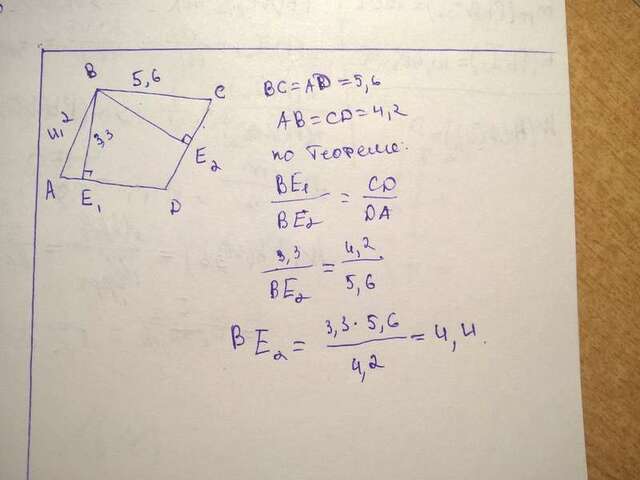 B 5,6 C
4,2 3,3
E₂
A E₁ D
BC=AD=5,6
AB=CD=4,2
по теореме:
BE₁/BE₂ = CD/DA
3,3/BE₂ = 4,2/5,6
BE₂ = 3,3·5,6/4,2 = 4,4.